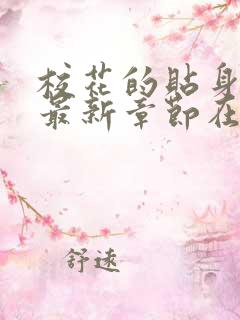 校花的贴身
最新章節在
舒遠